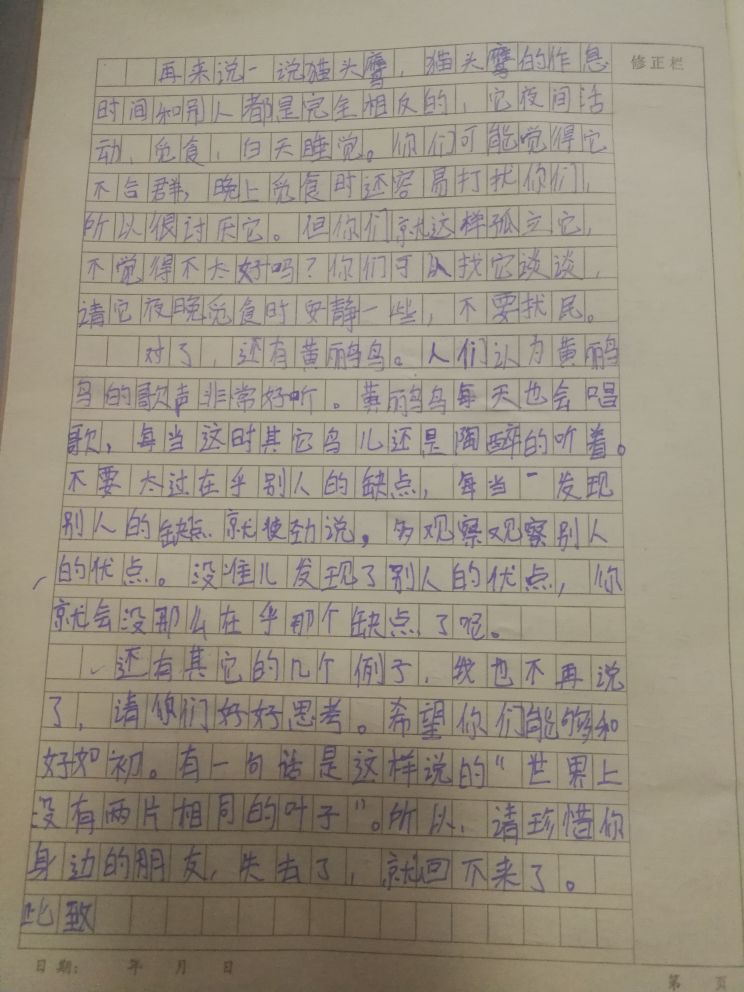 再来说一说猫头鹰，猫头鹰的作息
修正栏
时间和别人都是完全相反的，它夜间活
动，觅食，白天睡觉。你们可能觉得它
不合群，晚上觅食时还容易打扰你们，
所以很讨厌它。但你们就这样孤立它，
不觉得不太好吗？你们可以找它谈谈，
请它夜晚觅食时安静一些，不要扰民。
对了，还有黄鹂鸟。人们认为黄鹂
鸟的歌声非常好听。黄鹂鸟每天也会唱
歌，每当这时其它鸟儿还是陶醉的听着。
不要太过在乎别人的缺点，每当一发现
别人的缺点就使劲说，多观察观察别人
的优点。没准儿发现了别人的优点，你
就会没那么在乎那个缺点了呢。
还有其它的几个例子，我也不再说
了，请你们好好思考。希望你们能够和
好如初。有一句话是这样说的“世界上
没有两片相同的叶子”。所以，请珍惜你
身边的朋友，失去了，就回不来了。
此致
日期： 年 月 日
第 页